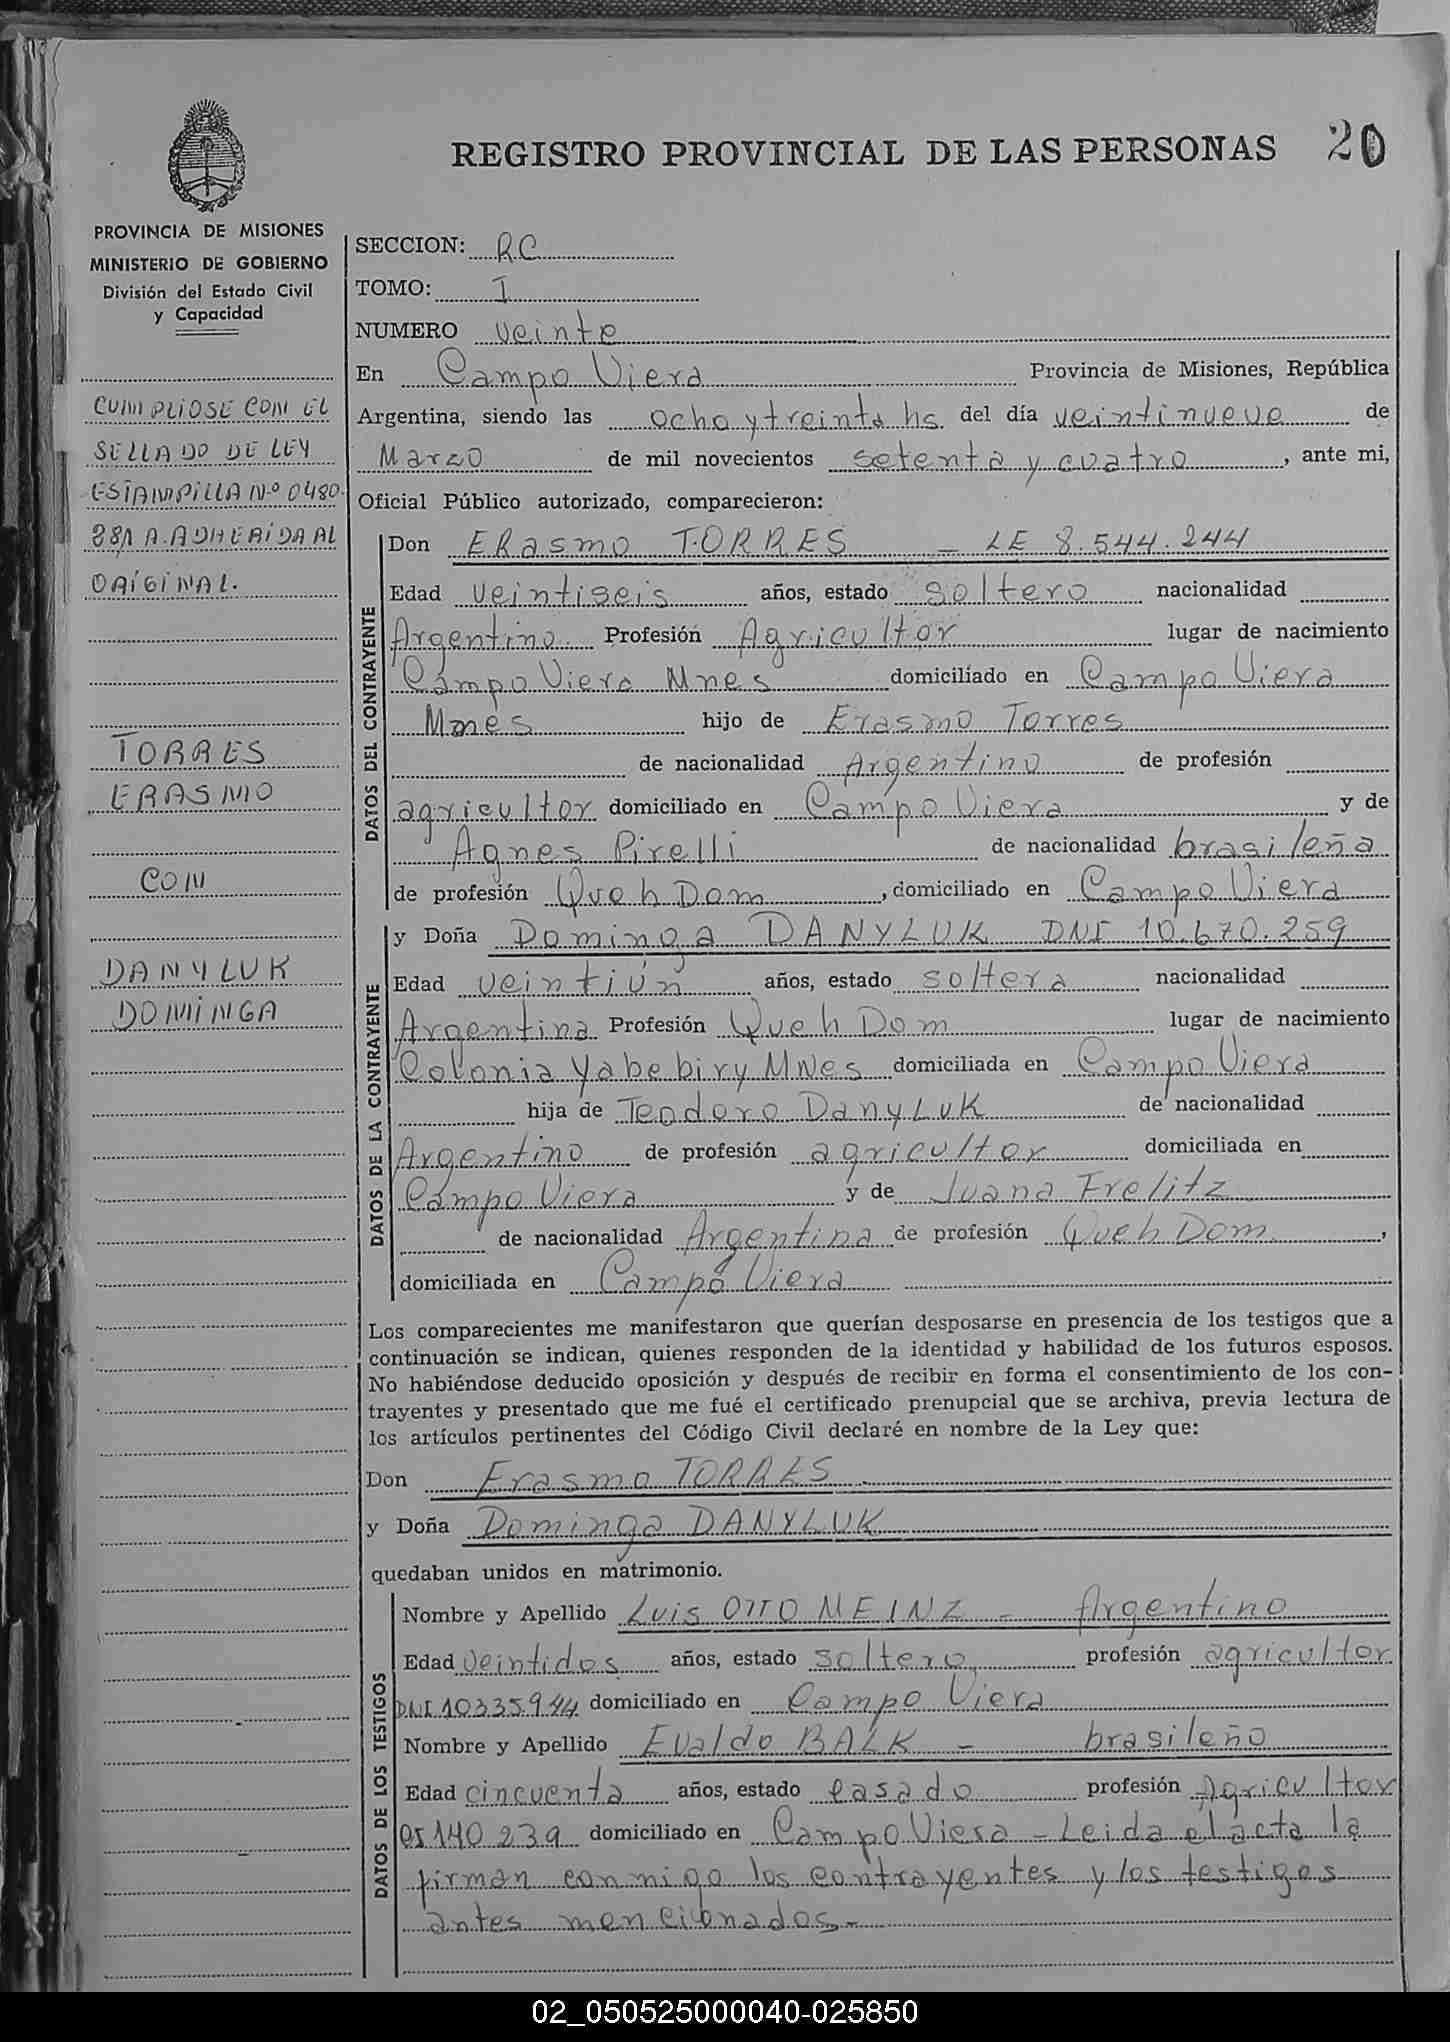 REGISTRO PROVINCIAL DE LAS PERSONAS 20
PROVINCIA DE MISIONES
MINISTERIO DE GOBIERNO
División del Estado Civil
y Capacidad
CUMPLIOSE CON EL
SELLADO DE LEY
ESTAMPILLA N.º 0480
381 A. ADHERIDA AL
ORIGINAL.
TORRES
ERASMO
CON
DANYLUK
DOMINGA
SECCION: RC
TOMO: I
NUMERO veinte
En Campo Viera Provincia de Misiones, República
Argentina, siendo las ocho y treinta hs. del día veintinueve de
Marzo de mil novecientos setenta y cuatro, ante mi,
Oficial Público autorizado, comparecieron:
DATOS DEL CONTRAYENTE
Don Erasmo TORRES - LE 8.544.244
Edad veintiseis años, estado soltero nacionalidad
Argentino Profesión Agricultor lugar de nacimiento
Campo Viera Mnes domiciliado en Campo Viera
Mnes hijo de Erasmo Torres
de nacionalidad Argentino de profesión
agricultor domiciliado en Campo Viera y de
Agnes Pirelli de nacionalidad brasileña
de profesión Queh Dom, domiciliado en Campo Viera
DATOS DE LA CONTRAYENTE
y Doña Dominga DANYLUK DNI 10.670.259
Edad veintiún años, estado soltera nacionalidad
Argentina Profesión Queh Dom lugar de nacimiento
Colonia Yabebiry Mnes domiciliada en Campo Viera
hija de Teodoro DanyLuK de nacionalidad
Argentino de profesión agricultor domiciliada en
Campo Viera y de Juana Frelitz
de nacionalidad Argentina de profesión Queh Dom.,
domiciliada en Campo Viera
Los comparecientes me manifestaron que querían desposarse en presencia de los testigos que a
continuación se indican, quienes responden de la identidad y habilidad de los futuros esposos.
No habiéndose deducido oposición y después de recibir en forma el consentimiento de los con-
trayentes y presentado que me fué el certificado prenupcial que se archiva, previa lectura de
los artículos pertinentes del Código Civil declaré en nombre de la Ley que:
Don Erasmo TORRES
y Doña Dominga DANYLUK
quedaban unidos en matrimonio.
DATOS DE LOS TESTIGOS
Nombre y Apellido Luis OTTO MEINZ - Argentino
Edad veintidos años, estado soltero profesión agricultor
DNI 10335.944 domiciliado en Campo Viera
Nombre y Apellido Evaldo BALK - brasileño
Edad cincuenta años, estado casado profesión Agricultor
CI 140 239 domiciliado en Campo Viera - Leida el acta la
firman conmigo los contrayentes y los testigos
antes mencionados-
02_050525000040-025850